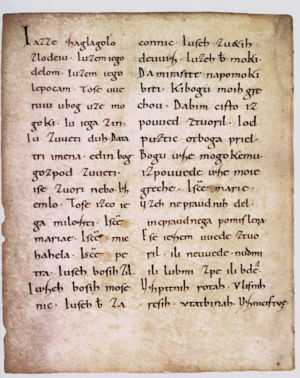 Iazze zaglagolo
zlodeiu· Iuzem iego
delom· Iuzem iego
lepocam· Tose uue
ruiu ubog uze mo
goki· Iu iega zin·
Iu zuueti duh· Data
tri imena· edin bog
gozpod zuueti·
ise zuori nebo· Iz
emlo· Tose izco ie
ga milosti· Isc̄e
mariae· Isc̄e mic
hahela· Isc̄e pe
tra· Iuseh bosih zil·
Iuzeh bosih mose
nic· Iuseh ƀ za
connic· Iuseh zuetih
deuuiz· Iuzeh ƀ moki·
Da mirasite napomoki
biti· Kibogu moih gre
chou· Dabim cisto iz
pouued ztuoril· Iod
puztic otboga priel·
Bogu uze mogokemu
izpouuede uze moie
greche· Isc̄e marie·
uzeh nepraudnih del·
inepraudnega pomislera
Ese iezem uuede ztuo
ril· ili neuuede· nudmi
ili lubmi zpe ili bde·
Uzpitnih rotah· Vlisnih
resih· Utatbinah·